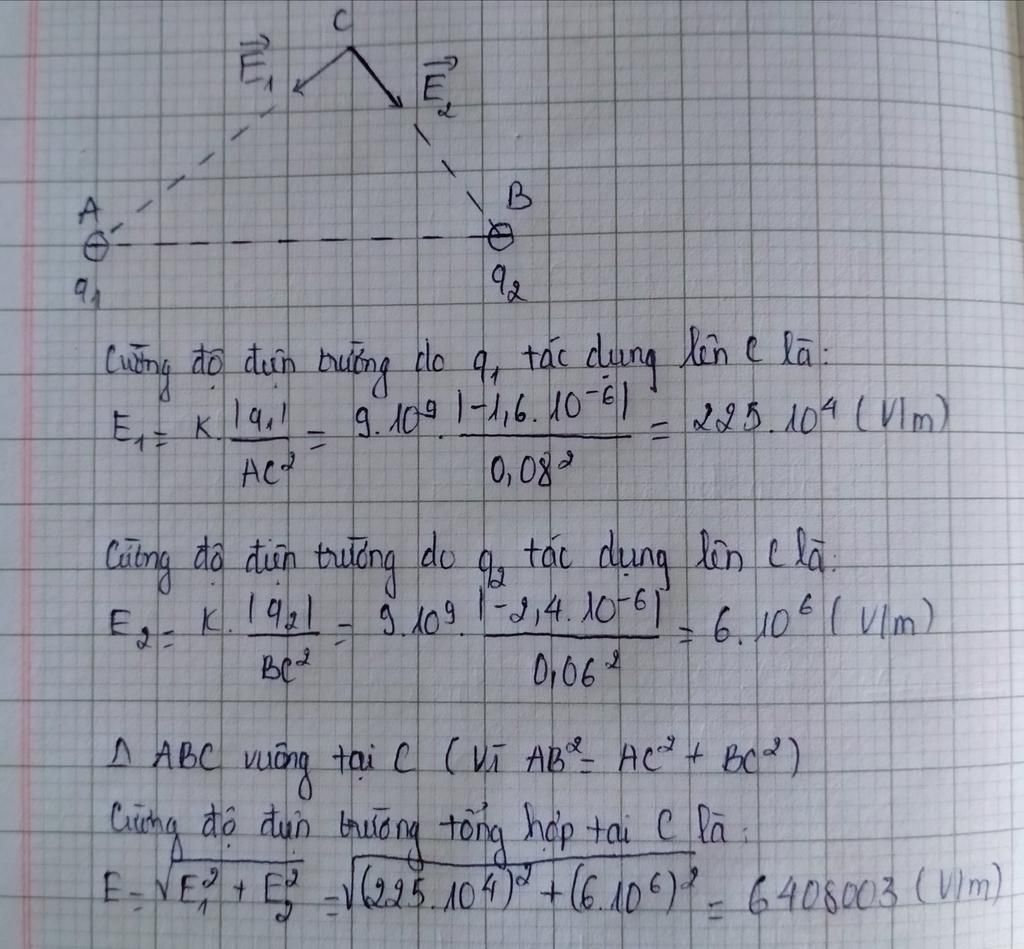 C
E₁
E₂
A
B
q₁
q₂
Cường độ điện trường do q₁ tác dụng lên C là:
E₁ = K. |q₁| / AC² = 9.10⁹. |-1,6. 10⁻⁶| / 0,08² = 225.10⁴ (V/m)
Cường độ điện trường do q₂ tác dụng lên C là:
E₂ = K. |q₂| / BC² = 9.10⁹. |-2,4. 10⁻⁶| / 0,06² = 6.10⁶ (V/m)
Δ ABC vuông tại C (Vì AB² = AC² + BC²)
Cường độ điện trường tổng hợp tại C là:
E = √(E₁² + E₂²) = √((225.10⁴)² + (6.10⁶)²) = 6408003 (V/m)